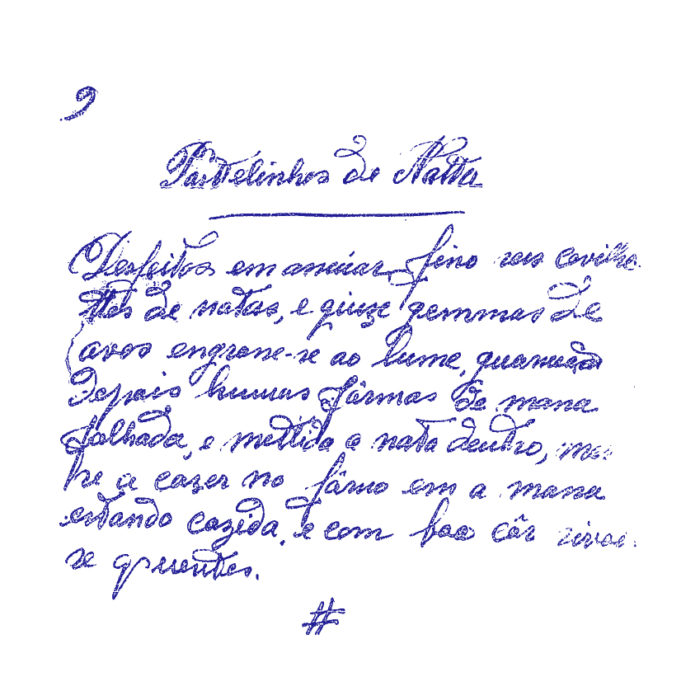 9
Pastelinhos de Natta
Desfeitos em assucar fino seis covilhe
ttes de natas, e quinze gemmas de
ovos engrosse-se ao lume,
depois humas fôrmas de massa
folhada, e mettida a nata dentro,
se a cozer no fôrno em a massa
estando cozida, e com boa côr
se quentes.
#